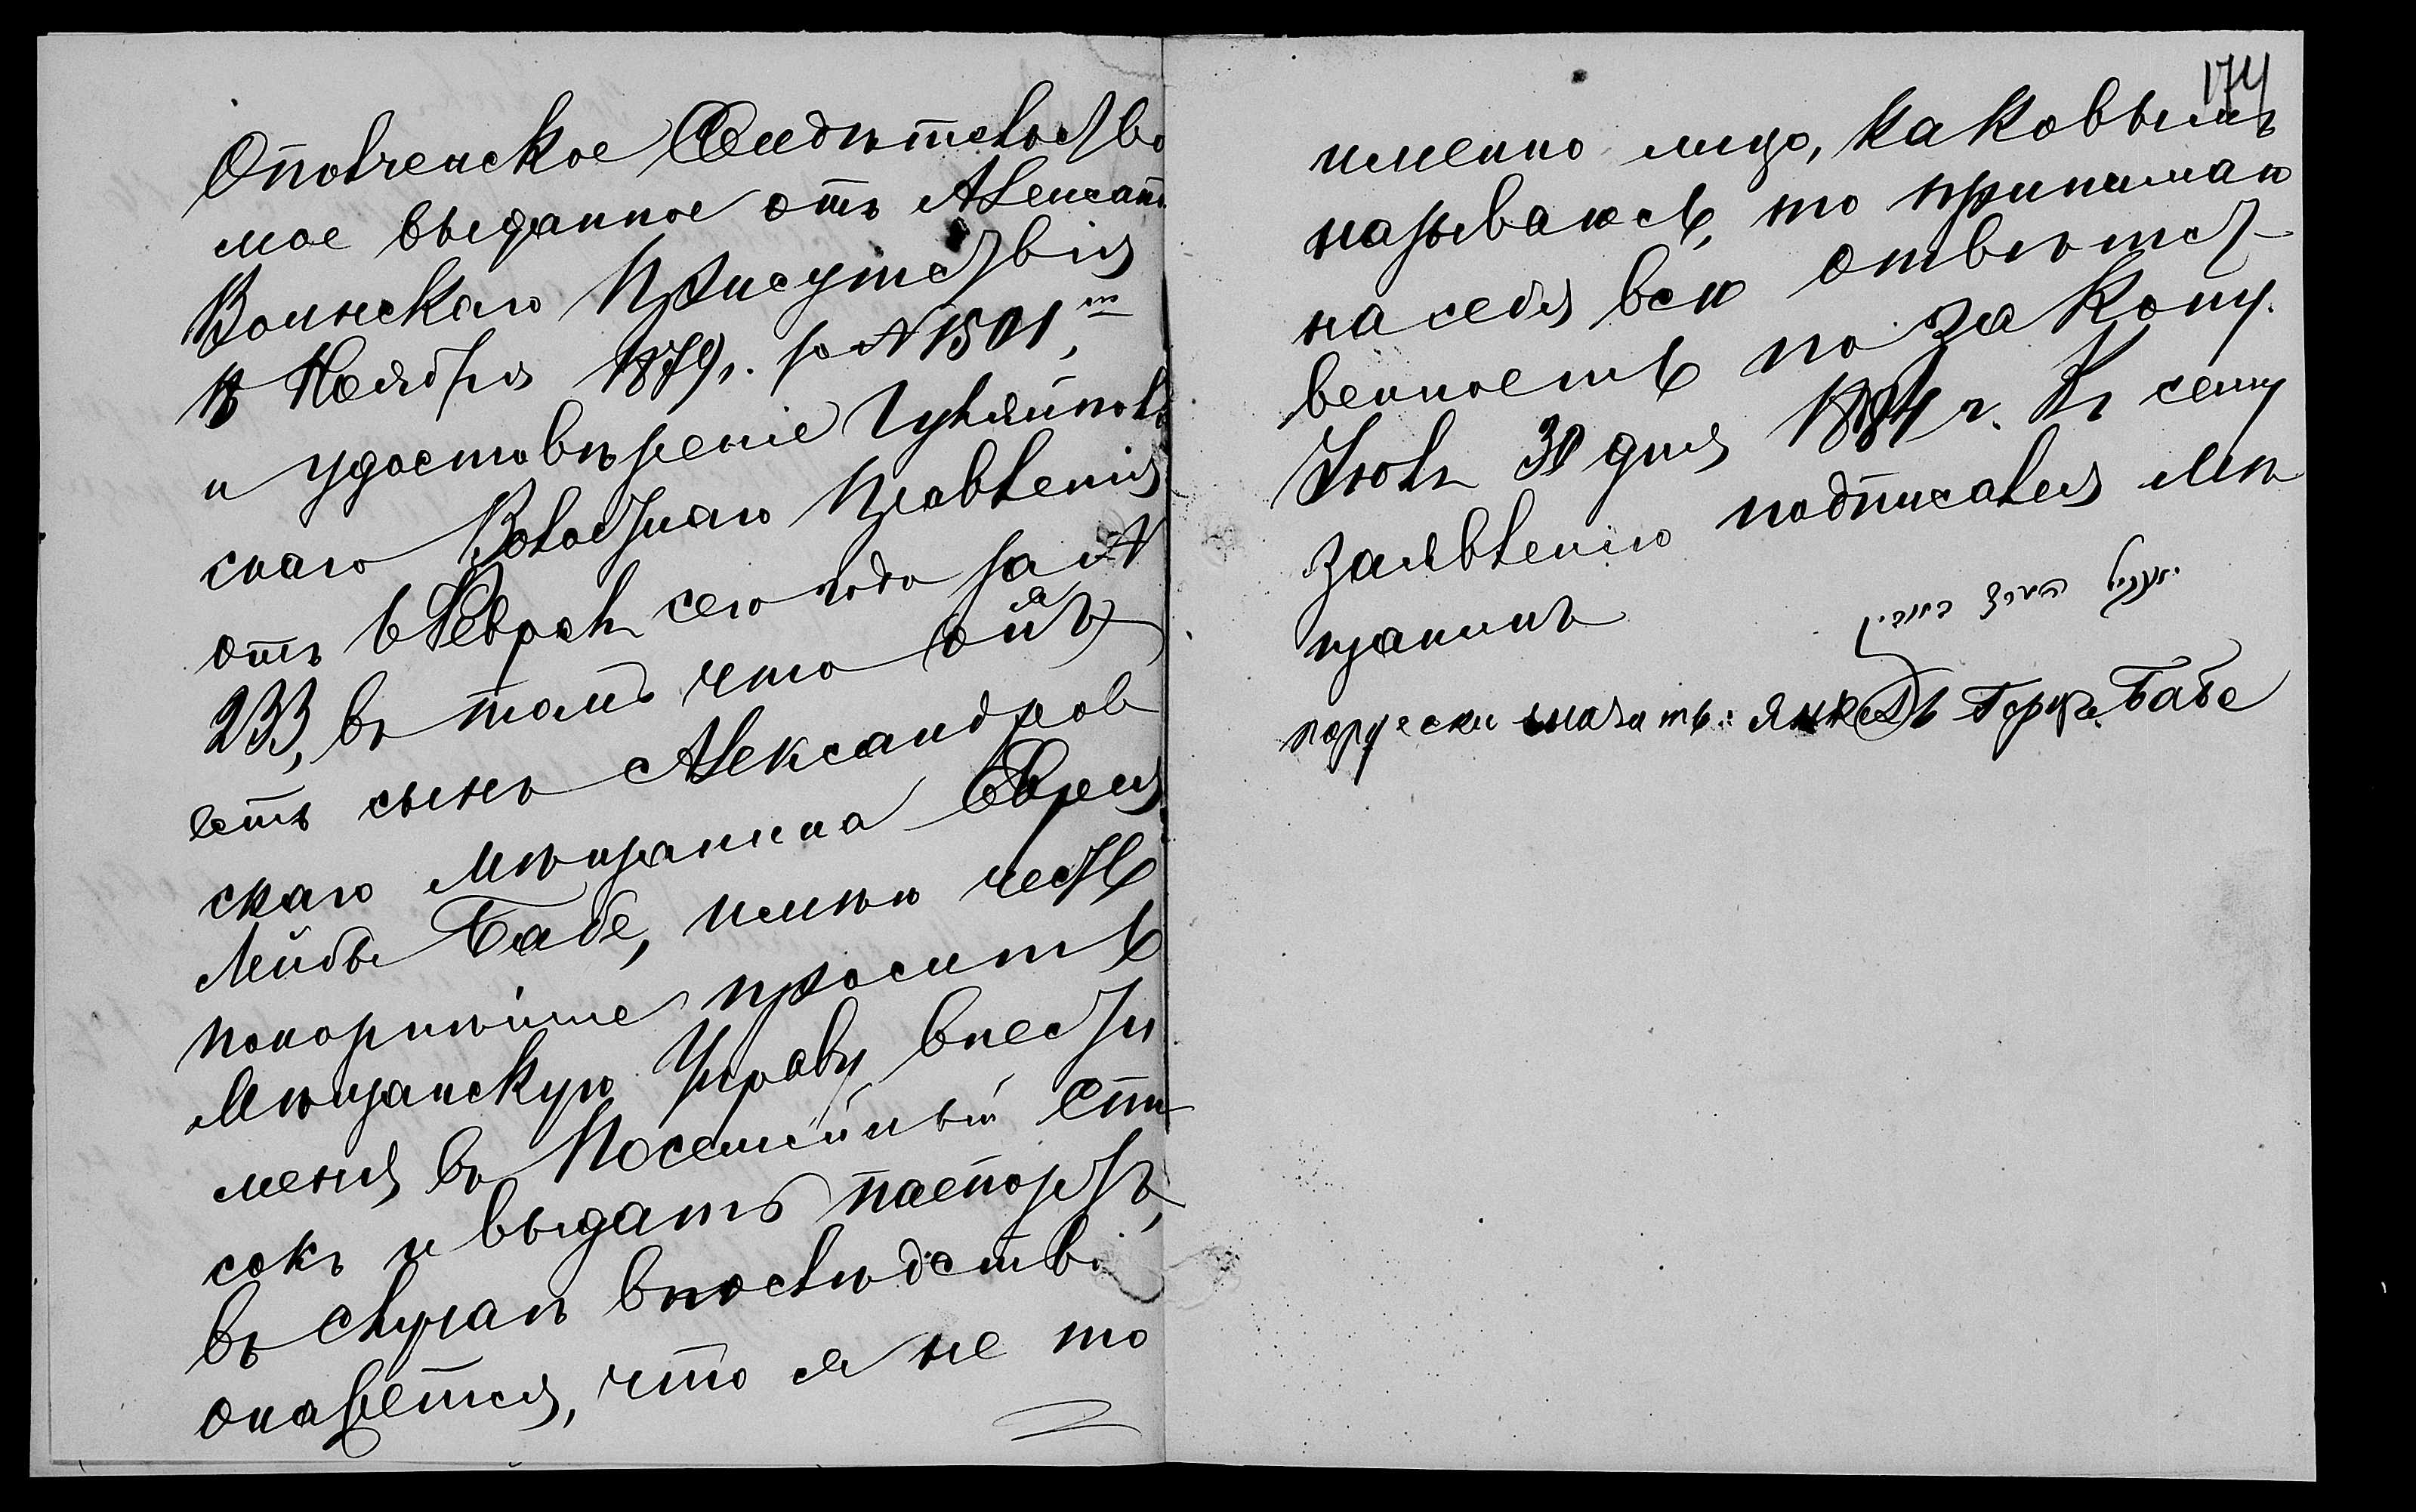 Ополченское Свидѣтельство
мое выданное отъ Алексан.
Воинскаго Присутствія
13 Ноября 1879 г. за № 1501,
и удостовѣреніе Гуляйполь
скаго Волостнаго Правленія
отъ 6 Февраля сего года за №
233, въ томъ что я
есть сынъ Александров
скаго мѣщанина Еврея
Лейбы Бабе, имѣю честь
покорнѣйше просить
Мѣщанскую Управу внести
меня въ Посемейный Спи
сокъ и выдать паспортъ,
въ случаѣ впослѣдствіи
окажется, что я не то
174
именно лицо, каковымъ
называюсь, то принимаю
на себя всю отвѣтст
венность по закону.
Іюля 30 дня 1884 г. Къ сему
заявленію подписался Мѣ
щанинъ
по русски значитъ: Янкель Герцъ Бабе